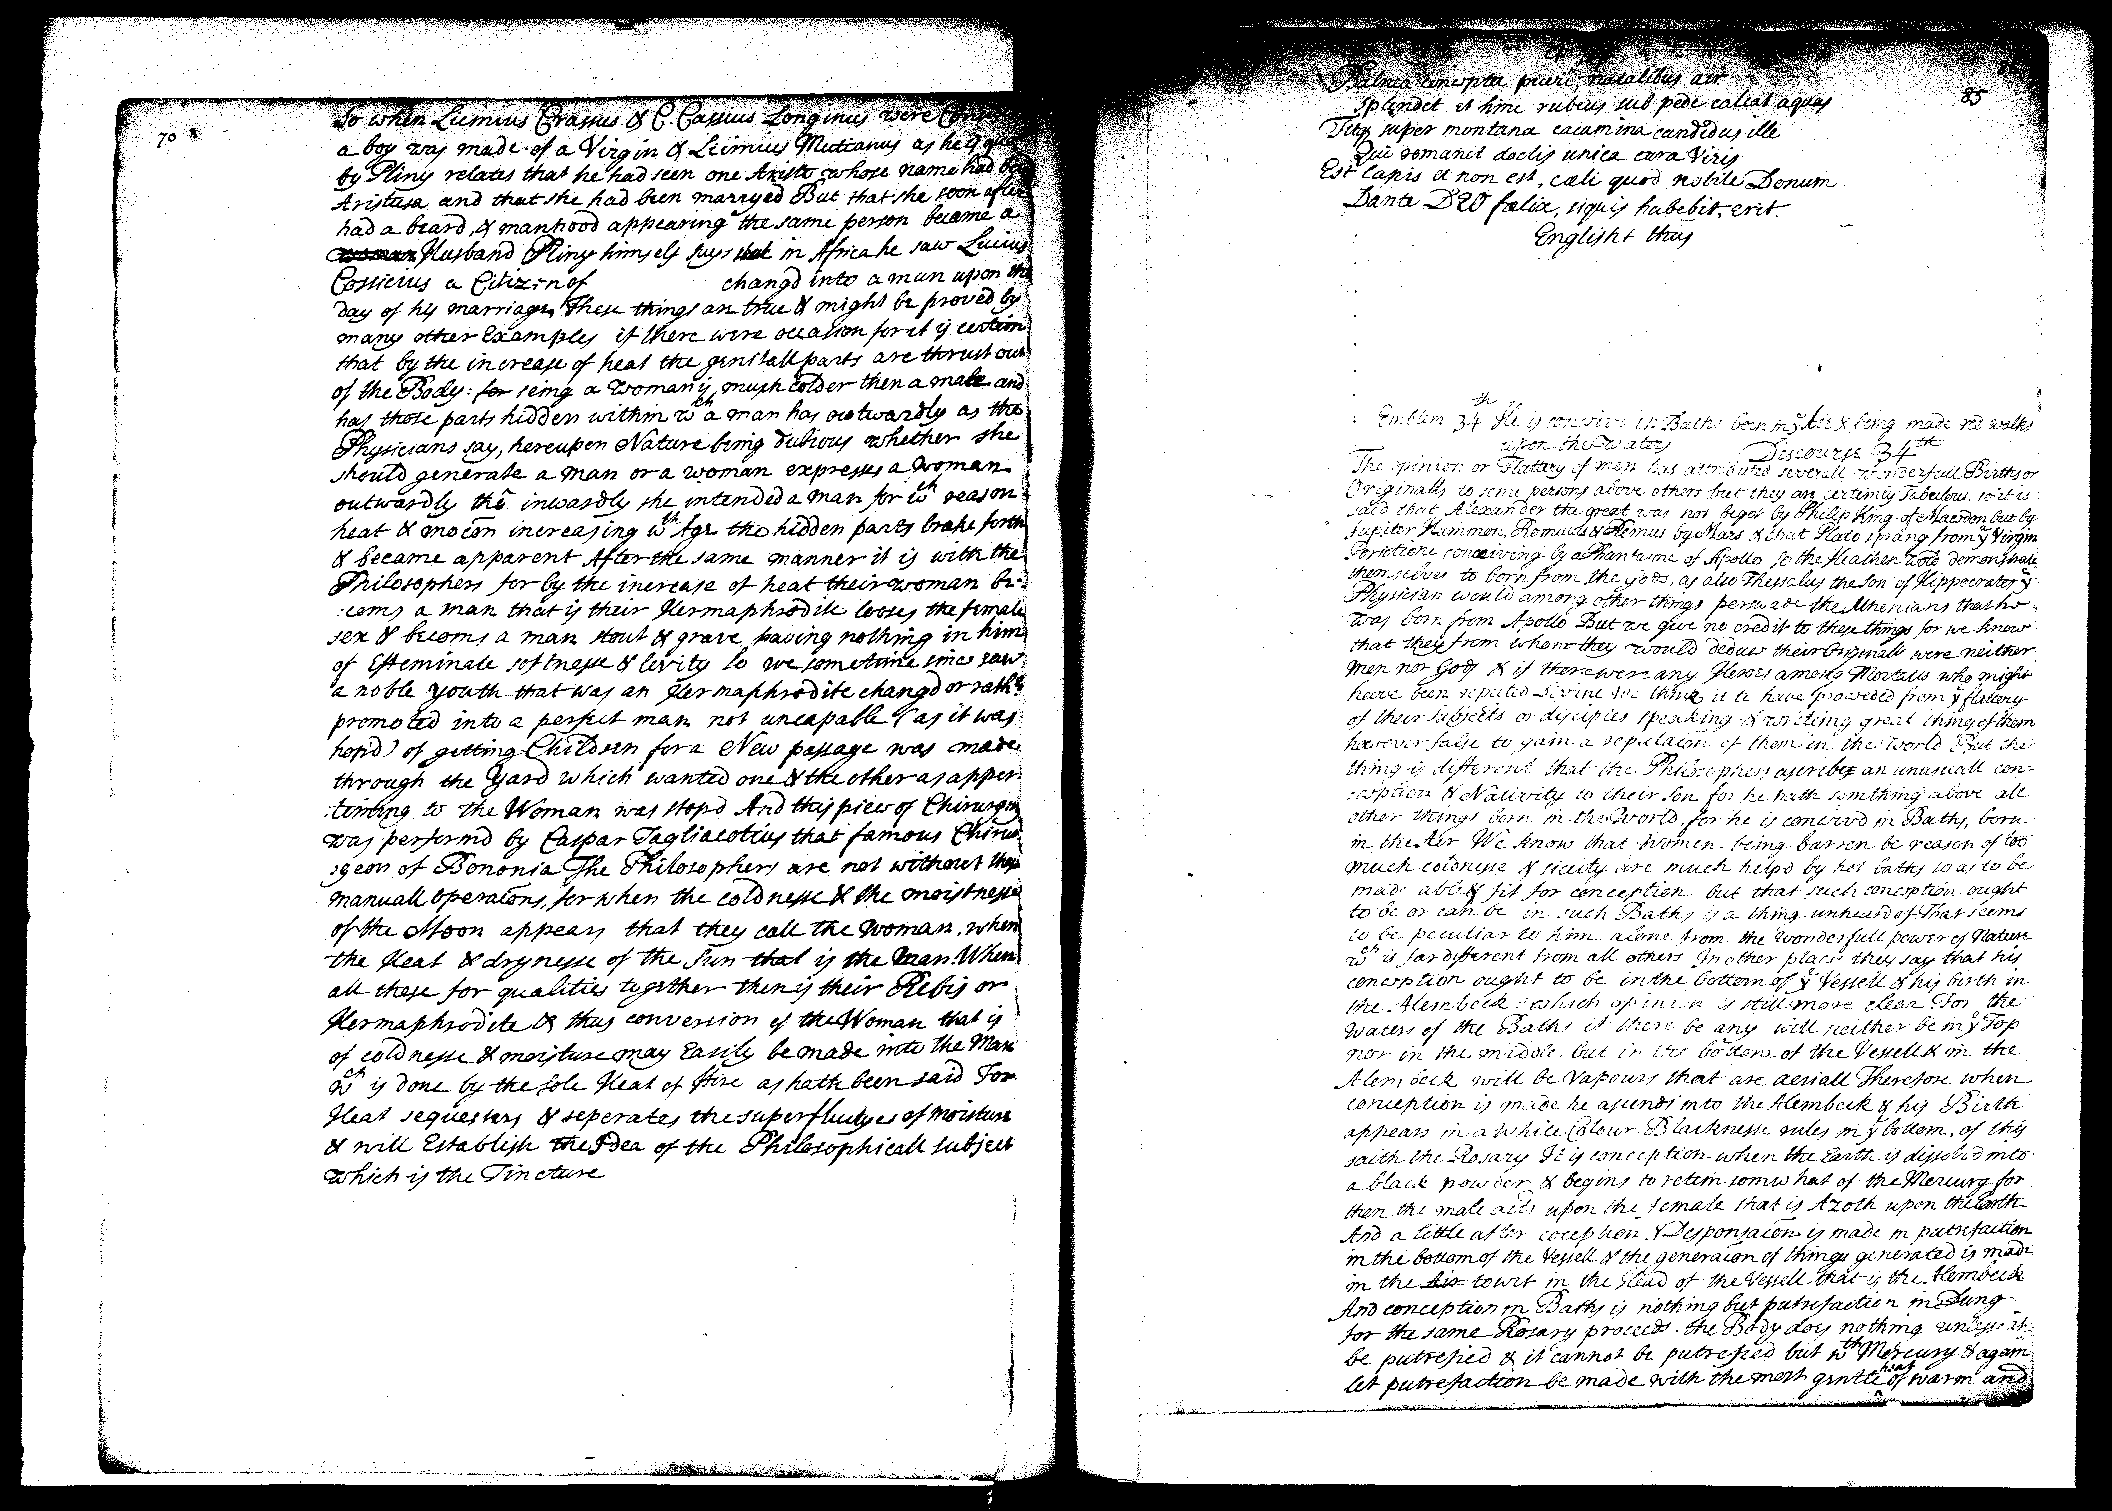 70
So when Licinius Crassus & C. Cassius Longinus were
a boy was made of a Virgin & Licinius Mutianus as he is
by Pliny relates that he had seen one Aristo whose name had
Aristusa and that she had been marryed But that she soon after
had a beard, & manhood appearing the same person became a
Husband Pliny himself says that in Africa he saw Lucius
Cossicius a Citizen of changd into a man upon the
day of his marriage, These things are true & might be proved by
many other Examples if there were occasion for it is certain
that by the increase of heat the genitall parts are thrust out
of the Body: for seing a woman is much colder then a male and
has those parts hidden within wch a man has outwardly as the
Physicians say, hereupon Nature being dubious whether she
should generate a man or a woman expresses a woman
outwardly tho inwardly she intended a man for wch reason
heat & mocōn increasing wth Age the hidden parts brake forth
& became apparent After the same manner it is with the
Philosophers for by the increase of heat their woman be-
:coms a man that is their Hermaphrodite looses the female
sex & becoms a man stout & grave having nothing in him
of Effeminate softnesse & levity So we sometime since saw
a noble youth that was an Hermaphrodite changd or rathr
promoted into a perfect man not uncapable (as it was
hopd) of getting Children for a New passage was made
through the Yard which wanted one & the other as apper
:tening to the Woman was stopd And this piece of Chirurgry
was performd by Caspar Tagliacotius that famous Chirur
:geon of Bononia The Philosophers are not without their
manuall operaōns, for when the coldnesse & the moistnesse
of the Moon appears that they call the woman, when
the Heat & drynesse of the Sun that is the man. When
all these for qualities together then is their Rebis or
Hermaphrodite & thus conversion of the Woman that is
of coldnesse & moisture may Easily be made into the Man
wch is done by the sole Heat of Fire as hath been said For
Heat sequesters & seperates the superfluityes of moisture
& will Establish the Idea of the Philosophicall subject
which is the Tincture
85
Balnea concepta pueri, natalibus aer
Splendet et hinc rubeus sub pede calcat aquas
Fitq super montana cacumina candidus ille
Qui remanet doctis unica cura Viris
Est lapis et non est, cæli quod nobile Donum
Dante DEO fælix, siquis habebit, erit.
Englisht thus
Emblem 34th He is conceivd in Baths born in ye Air & being made red walks
upon the waters Discourse 34th
The opinion or Flattery of men has attributed severall wonderfull Births or
Originalls to some persons above others but they are certainly Fabulous. so it is
said that Alexander the great was not begot by Philip King of Macedon but by
Jupiter Hammon, Romulus & Remus by Mars & that Plato sprang from ye Virgin
Perictione conceiving by a Phantasme of Apollo So the Heathen wold demonstrate
themselves to born from the gods, as also Thessalus the Son of Hippocrates ye
Physician would among other things perswade the Athenians that he
was born from Apollo But we give no credit to these things for we know
that they from whence they would deduce their Originals were neither
Men nor Gods & if there were any Heroes among Mortalls who might
have been reputed Divine we think it to have proceeded from ye flattery
of their subjects or disciples speaking & writeing great things of them
however false to gain a reputacōn of them in the World But the
thing is different that the Philosophers ascribe an unusuall con-
:ception & Nativity to their Son for he hath somthing above all
other things born in the World, for he is conceivd in Baths, born
in the Aer We know that women being barren be reason of too
much coldnesse & siccity are much helpd by hot baths so as to be
made able & fit for conception but that such conception ought
to be or can be in such Baths is a thing unheard of That seems
to be peculiar to him alone from the wonderfull power of Nature
wch is far different from all others In other places they say that his
conception ought to be in the bottom of ye Vessell & his birth in
the Alembeck: which opinion is still more clear For the
waters of the Baths if there be any will neither be in ye Top
nor in the middle but in the bottom of the Vessell & in the
Alembeck will be Vapours that are aeriall Therefore when
conception is made he ascends into the Alembeck & his Birth
appears in a white Colour Blacknesse rules in ye bottom, of this
saith the Rosary It is conception when the Earth is dissolvd into
a black powder & begins to retein somwhat of the Mercury for
then the male acts upon the female that is Azoth upon the Earth
And a little after coception & Desponsaōn is made in putrefaction
in the bottom of the Vessell & the generaōn of things generated is made
in the Air towit in the Head of the Vessell that is the Alembeck
And conception in Baths is nothing but putrefaction in Dung
for the same Rosary proceeds. the Body does nothing unlesse it
be putrefied & it cannot be putrefied but wth Mercury & again
let putrefaction be made with the most gentle heat of warm and